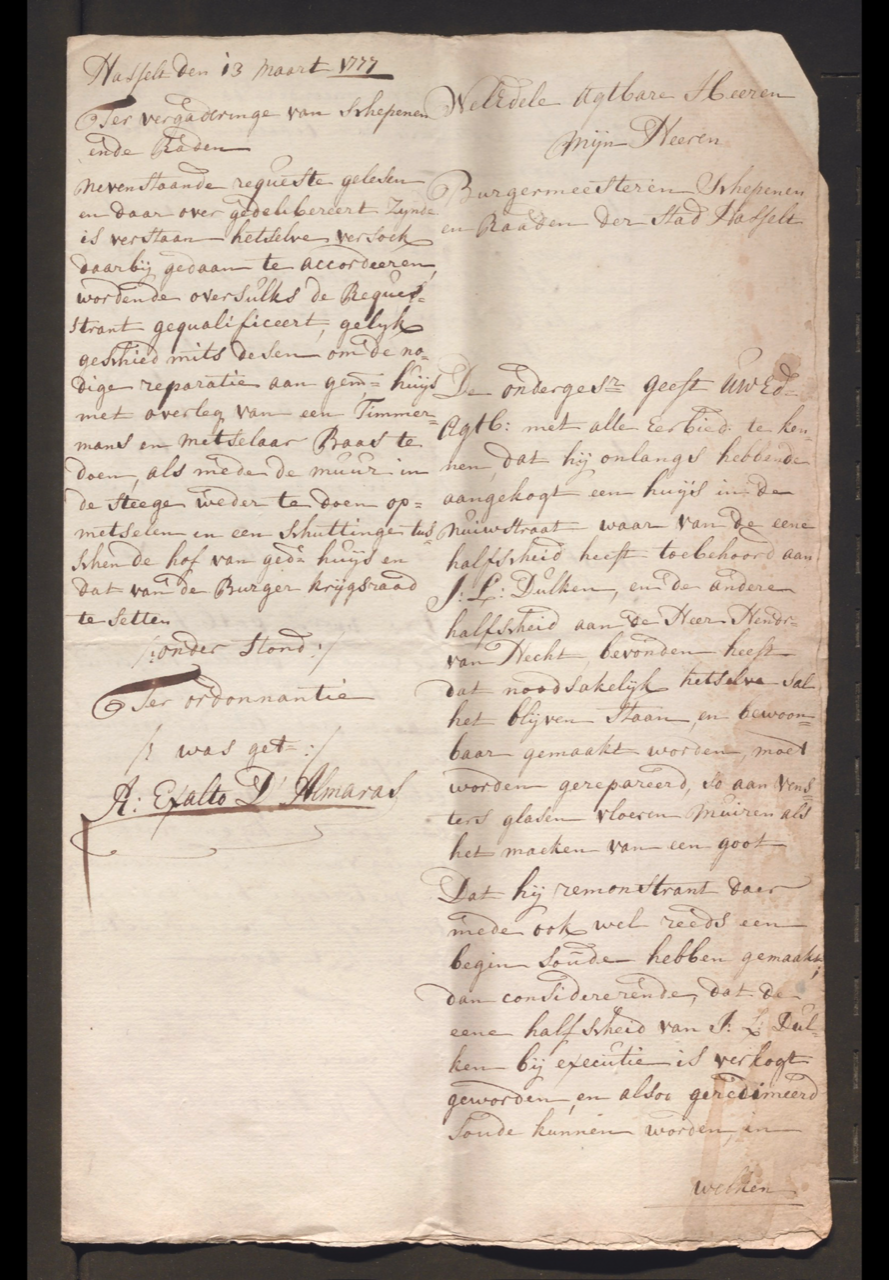 Hasselt den 13 Maart 1777
Ter vergaderinge van Schepenen
ende Raden
Nevenstaande requeste gelesen
en daar over gedelibereert Zynde
is verstaan hetselve versoek
daarbij gedaan te accordeeren,
wordende oversulks de Reques-
strant gequalificeert, gelyk
geschied mits desen om de no-
dige reparatie aan gem: huijs
met overleg van een Timmer-
mans en Metselaar Baas te
doen, als mede de muur in
de Steege weder te doen op=
metselen en een Schuttinge tus
schen de hof van ged: huijs en
dat van de Burger krijgsraad
te setten
/:onder Stond:/
Ter ordonnantie
/: was get=:/
A: Exalto D' Almaras
WelEdele Agtbare Heeren
Mijn Heeren
Burgermeesteren Schepenen
en Raaden der Stad Hasselt
De onderges: geeft UWEd
Agtb: met alle Eerbied te ken-
nen, dat hij onlangs hebbende
aangekogt een huijs in de
Nuiwstraat waar van de eene
halfscheid heeft toebehoord aan
J: L: Dulken, en de andere
halfscheid aan de Heer Hendr:
van Hecht, bevonden heeft
dat noodsakelijk hetselve sal
het blijven Staan, en bewoon=
baar gemaakt worden, moet
worden gerepareerd, so aan vens
ters glasen vloeren Muiren als
het maeken van een goot
Dat hij remonstrant daer
mede ook wel reeds een
begin soude hebben gemaakt,
dan considererende, dat de
eene halfscheid van J: L Dul-
ken bij executie is verkogt
geworden, en alsoo geredimeerd
soude kunnen worden, in
welken